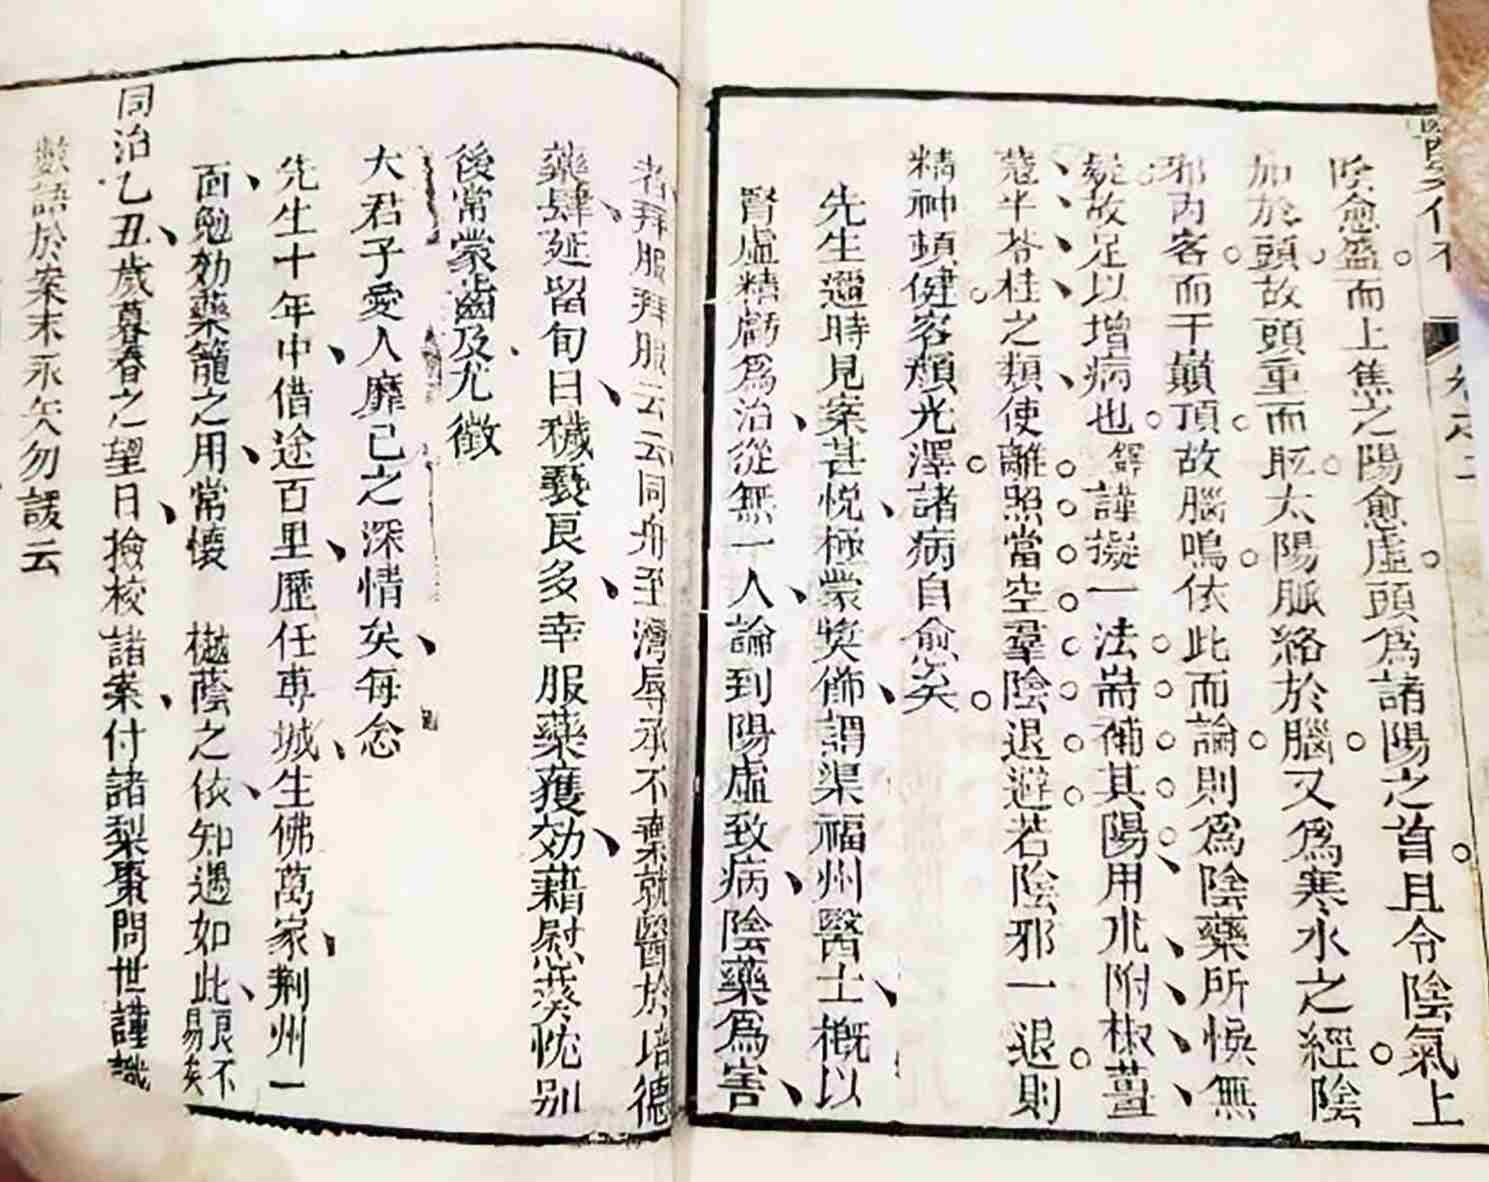 陰愈盛而上焦之陽愈虛頭爲諸陽之首且令陰氣上
加於頭故頭重而眩太陽脈絡於腦又爲寒水之經陰
邪內客而干巔頂故腦鳴依此而論則爲陰藥所悞無
疑故足以增病也鐸謹擬一法耑補其陽用朮附椒薑
蔻半苓桂之類使離照當空羣陰退避若陰邪一退則
精神頓健容顏光澤諸病自愈矣
先生邇時見案甚悅極蒙獎飾謂渠福州醫士概以
腎虛精虧爲治從無一人論到陽虛致病陰藥爲害
者拜服拜服云云同舟至灣辱承不棄就醫於培德
藥肆延留旬日穢褻良多幸服藥獲効藉慰葵忱别
後常蒙齒及尤徵
大君子愛人靡已之深情矣每念
先生十年中借途百里歷任專城生佛萬家荆州一
面勉効藥籠之用常懷樾蔭之依知遇如此良不易矣
同治乙丑歲暮春之望日撿校諸案付諸梨棗問世謹識
數語於案末永矢勿諼云